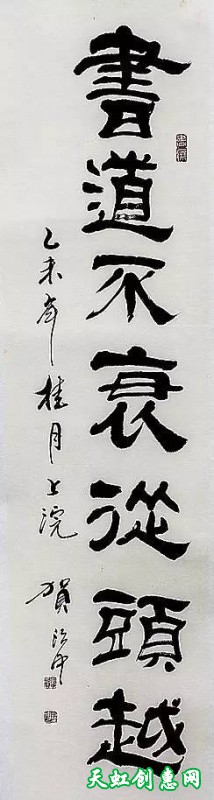 書道不衰從頭越
乙未年桂月上浣
賀
天虹创意网